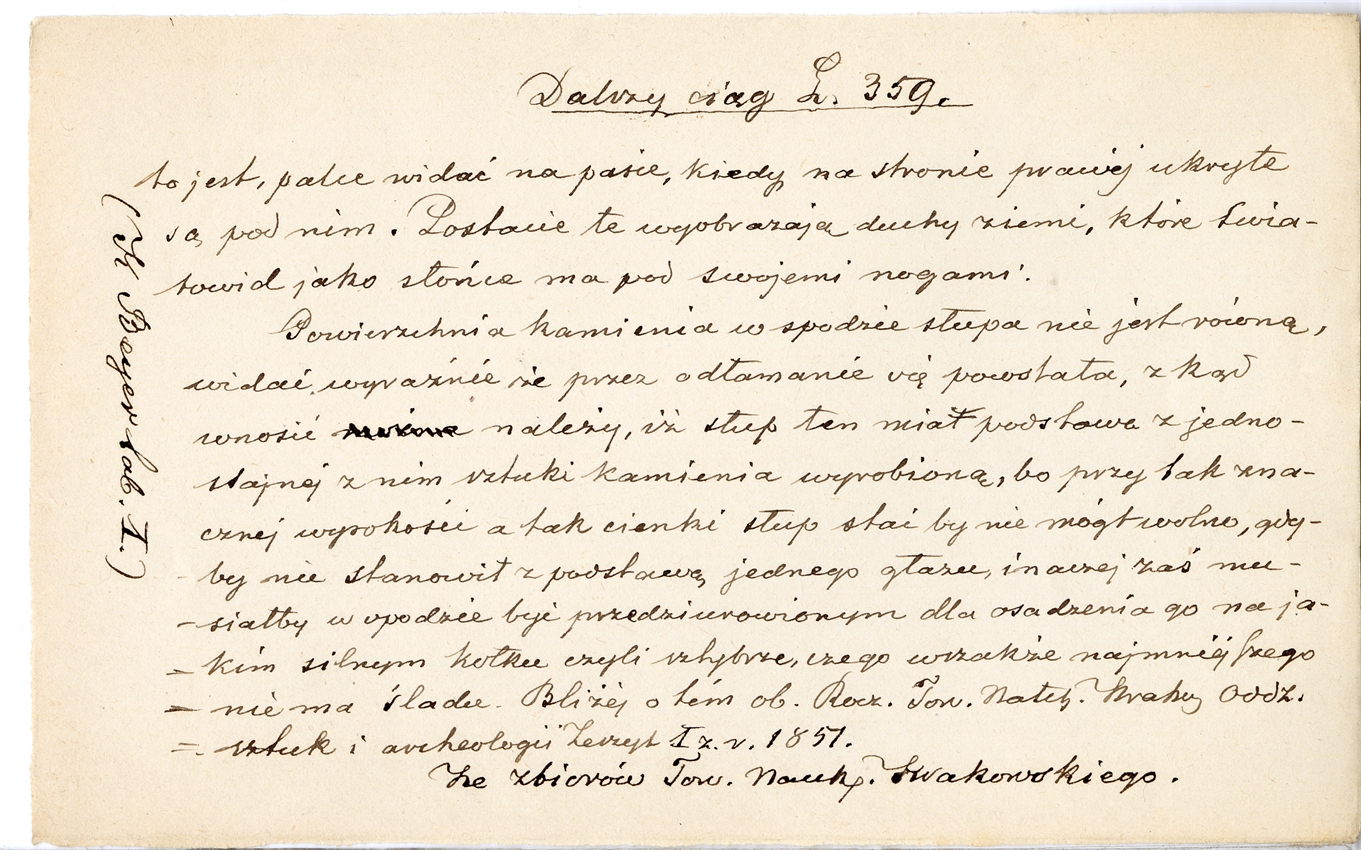 Dalszy ciąg L. 359.
to jest, palce widać na pasie, kiedy na stronie prawéj ukryte
są pod nim. Postacie te wyobrazają duchy ziemi, które Świa-
towid jako słońce ma pod swojemi nogami.
Powierzchnia kamienia w spodzie słupa nie jest równą,
widać wyraźnie że przez odłamanie się powstała, z kąd
wnosić należy, iż słup ten miał podstawę z jedno-
stajnéj z nim sztuki kamienia wyrobioną, bo przy tak zna-
cznej wysokości a tak cienki słup stać by nie mógł wolno, gdy-
by nie stanowił z podstawą jednego głazu, inaczej zaś mu-
siałby w spodzie być przedziurowionym dla osadzenia go na ja-
kim silnym kołku czyli sztybrze, czego wszakże najmniéjszego
nié ma śladu. Bliżéj o tém ob. Rocz. Tow. Nauk. Krakow. Oddz.
sztuk i archeologii Zeszyt I z. r. 1851.
Ze zbiorów Tow. Nauk. Krakowskiego.
(K Beyer tab. I.)